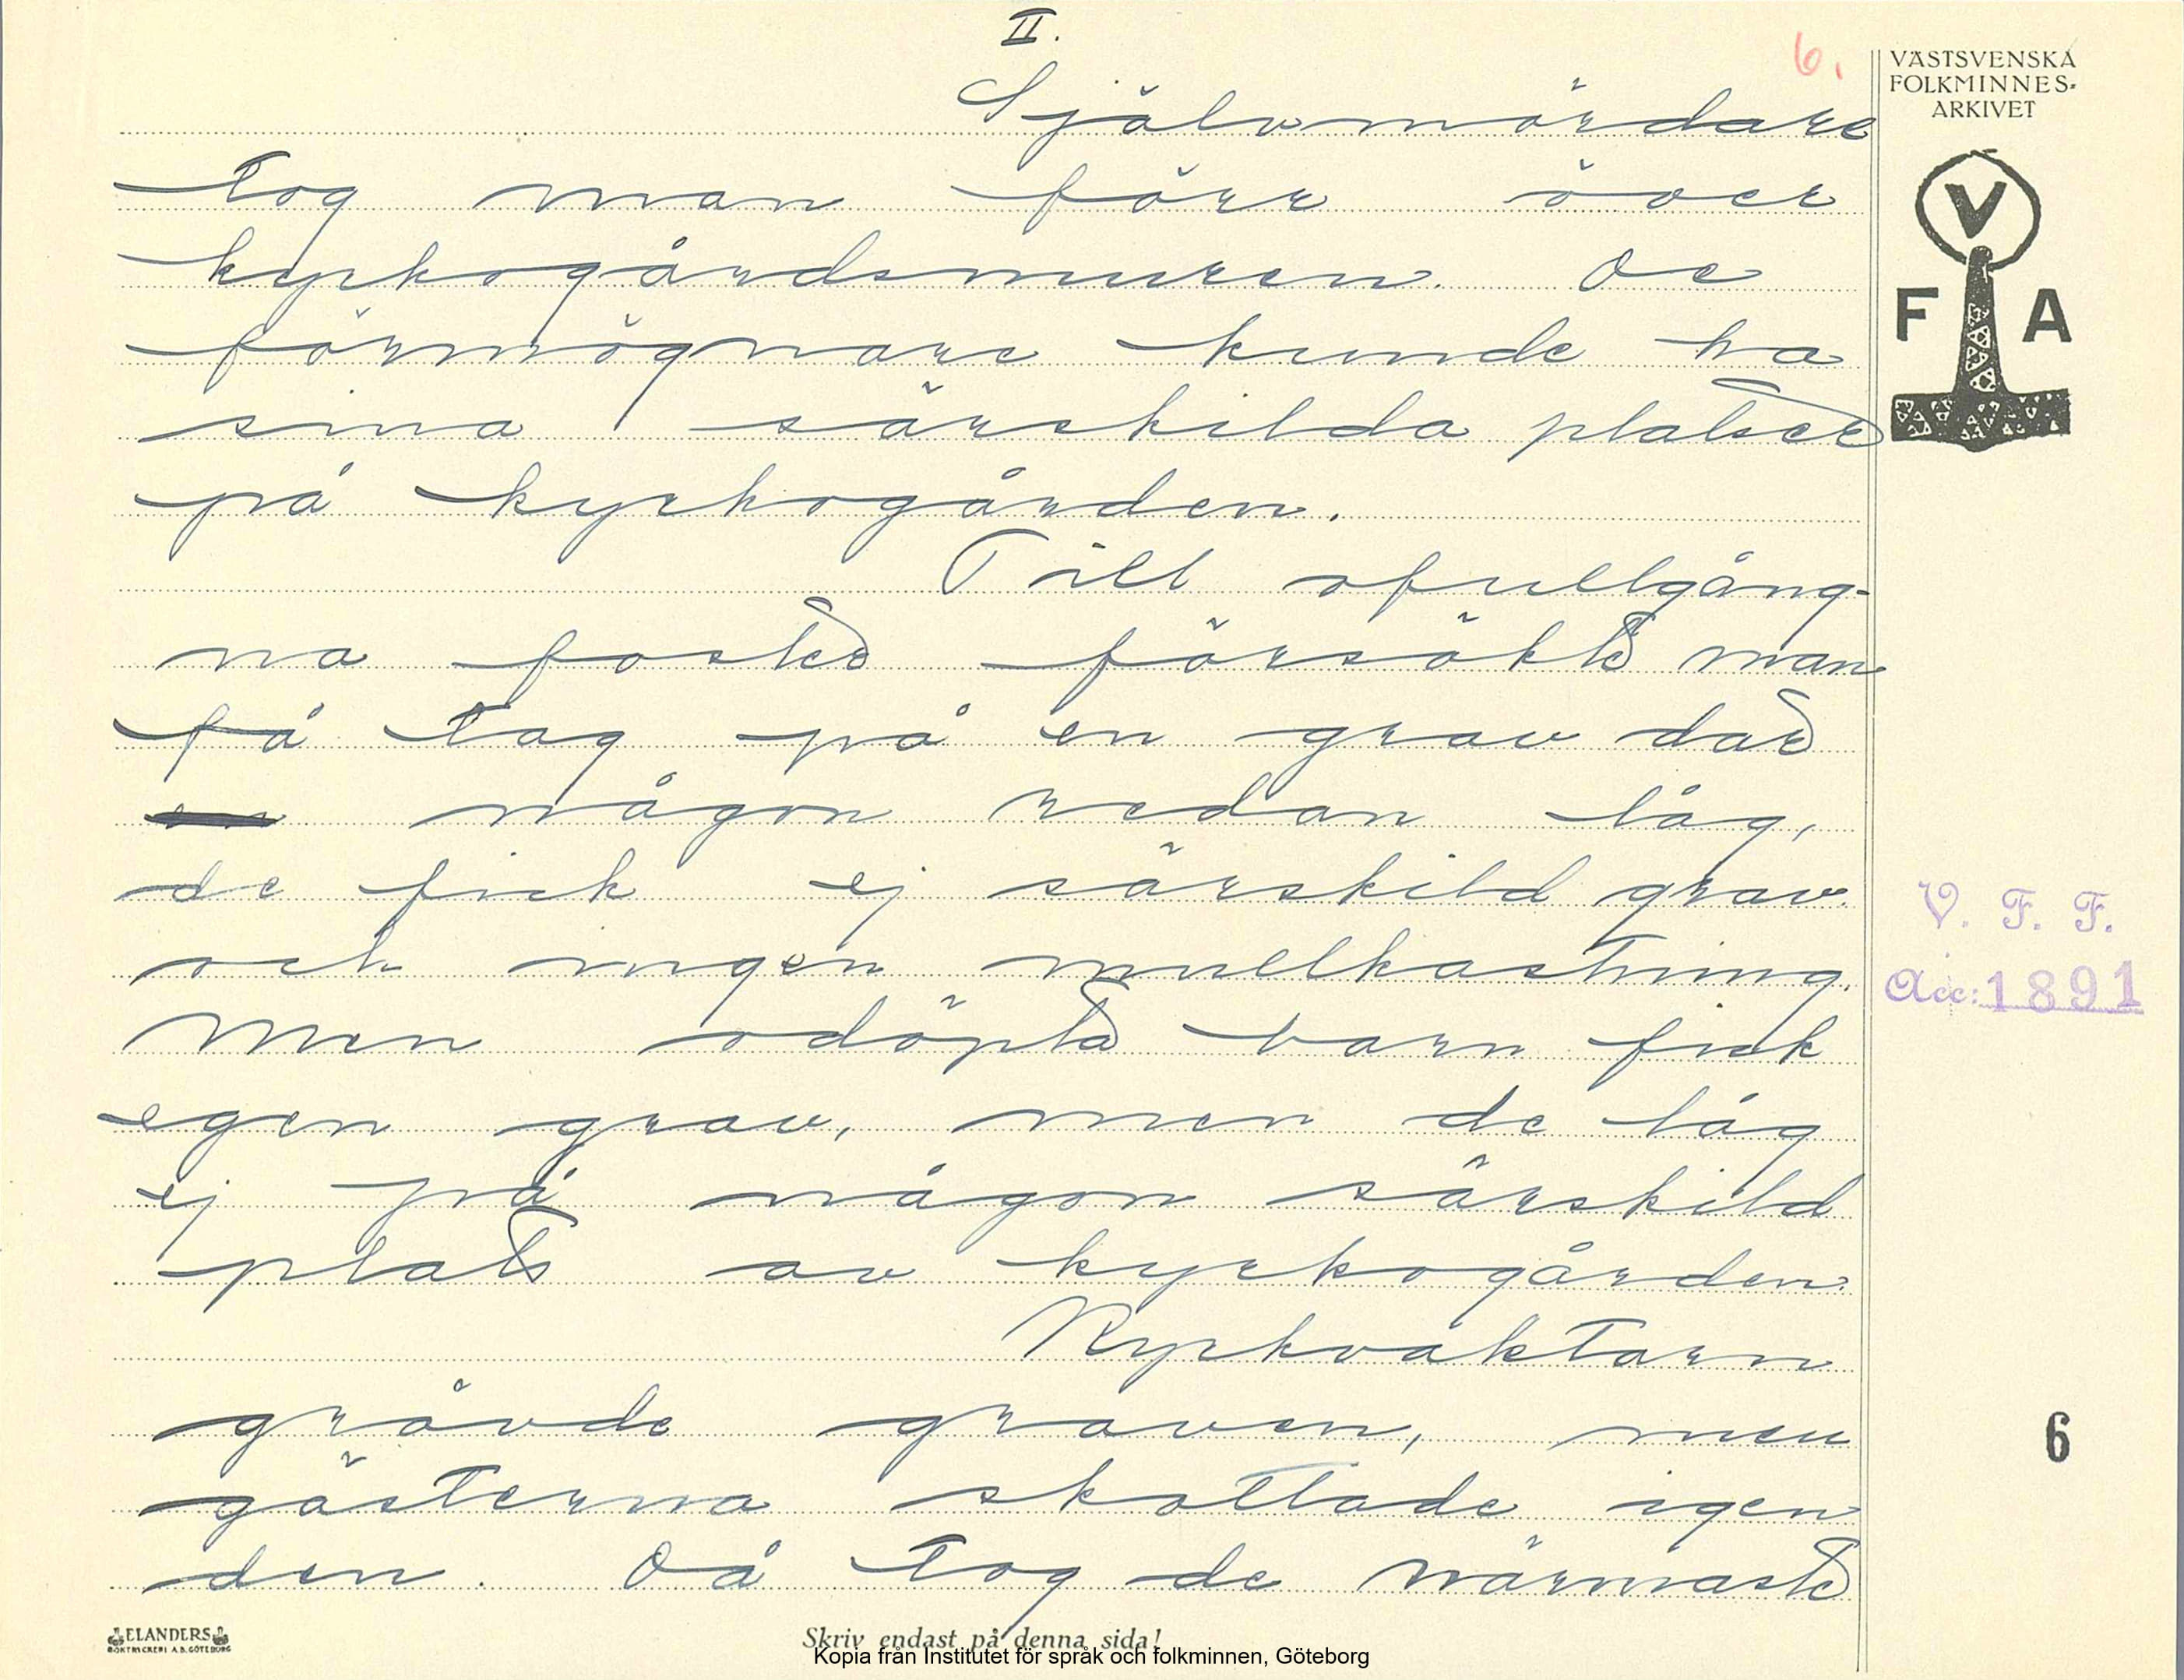 II.
6.
VÄSTSVENSKA
FOLKMINNES-
ARKIVET
V
F A
Självmördare
tog man förr över
kyrkogårdsmuren. De
förmögnare kunde ha
sina särskilda platser
på kyrkogården.
Till ofullgång-
na foster försökte man
få tag på en grav där
någon redan låg,
de fick ej särskild grav
och ingen mullkastning.
Men odöpta barn fick
egen grav, men de låg
ej på någon särskild
plats av kyrkogården.
Kyrkvaktarn
grävde graven, men
gästerna skottade igen
den. Då tog de närmaste
V. F. F.
Acc: 1891
6
ELANDERS
BOKTRYCKERI A.B. GÖTEBORG
Skriv endast på denna sida!
Kopia från Institutet för språk och folkminnen, Göteborg